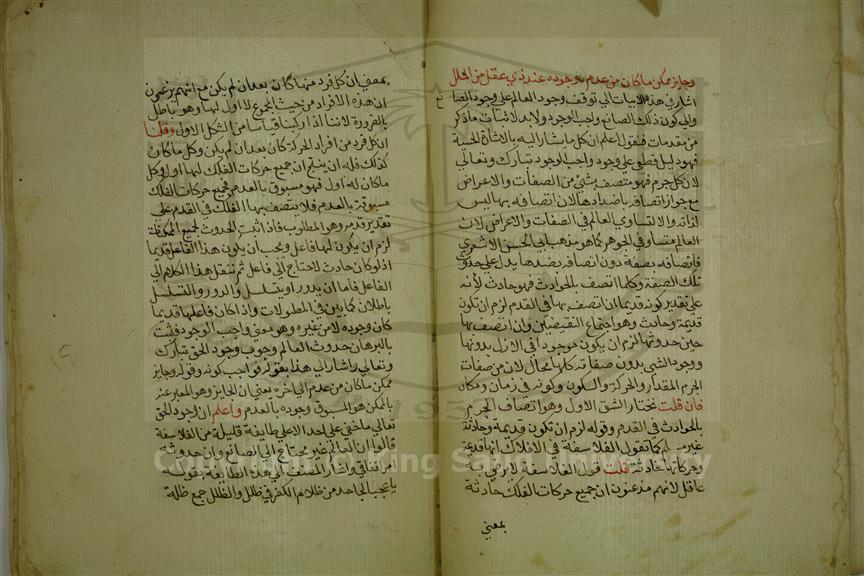 وجايز ممكن ما كان من عدم وجوده عند ذي عقل من الخلل
اشار في هذه الابيات الي توقف وجود العالم علي وجود الصا نع
والي كون ذلك الصانع واجب الوجود ولابد لاثبات ما ذكر
من مقدمات فنقول اعلم ان كل ما يشار اليه بالاشارة الحسية
فهو دليل قطعي علي وجود واجب الوجود تبارك وتعالي
لان كل جرم فهو متصف بشيء من الصفات والاعراض
مع جواز اتصافه باضدادها لان اتصافه بها ليس
لذاته والا لتساوي العالم في الصفات والاعراض لان
العالم متساو في الجوهر كما هو مذهب ابي الحسن الاشعري
فاتصافه بصفة دون اتصافه بضدها يدل علي حدوث
تلك الصفة وكلما اتصف بالحوادث فهو حادث لأنه
علي تقدير كونه قديما ان اتصف بها في القدم لزم ان تكون
قديمة وحادث وهو اجتماع النقيضين وان اتصف بها
حين حدوثها لزم ان يكون موجودا في الازل بدونها
ووجود الشي بدون صفاته كلها محال لان من صفات
الجرم المقدار والحركة والسكون وكونه في زمان ومكان
فان قلت نختار الشق الاول وهو اتصاف الجرم
بالحوادث في القدم وقوله لزم ان تكون قديمة وحادثة
غير مسلم كما تقول الفلاسفة في الافلاك انها قديمة
وحركاتها حادثة قلت قول الفلاسفة لا يرضي به
عاقل لانهم مذعنون ان جميع حركات الفلك حادثة
بمعني
بمعني ان كل فرد منها كان بعد ان لم يكن مع انهم يزعمون
ان هذه الافراد من حيث المجموع لا اول لها وهو باطل
بالضرورة لاننا اذا ركبنا قياسا من الشكل الاول وقلنا
ان كل فرد من افراد الحركة كان بعد ان لم يكن وكل ما كان
كذلك فله ان ينتج ان جميع حركات الفلك لها اول وكل
ما كان له اول فهو مسبوق بالعدم فجميع حركات الفلك
مسبوقة بالعدم فلا يتصف بها الفلك في القدم علي
تقدير قدمه وهو المطلوب فاذا ثبت الحدوث لجميع الممكنات
لزم ان يكون لها فاعل ويجب ان يكون هذا الفاعل قديما
اذ لو كان حادث لاحتاج الي فاعل ثم ننقل هذا الكلام الي
الفاعل فاما ان يدور او يتسلسل والدور والتسلسل
باطلان كما بين في المطولات واذا كان فاعلها قديما
كان وجوده لا من غيره وهو معني واجب الوجود فثبت
بالبرهان حدوث العالم ووجوب وجود الحق تبارك
وتعالي واشار الي هذا بقوله فواجب كونه وقوله وجايز
ممكن ما كان من عدم الي اخره يعني ان الجايز وهو المعبر عنه
بالممكن هو المسبوق وجوده بالعدم واعلم ان وجود الحق
تعالي ما خفي علي احد الا علي طايفة قليلة من الفلاسفة
قالوا ان العالم غير محتاج الي الصانع وان حدوثه
امر اتفاقي واشار المصنف الي هذه الطايفة بقوله
يا عجبا لجاحد من ظلام الكفر في ظلل والظلل جمع ظلة
Copyright © King Saud University
1957